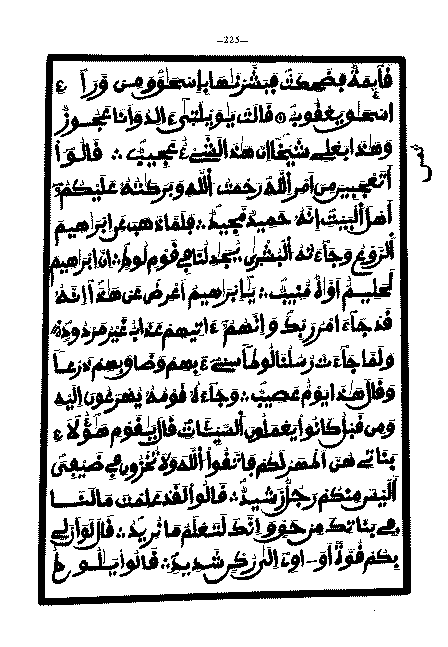 —225—
قَآئِمَةٌ فَضَحِكَتْ فَبَشَّرْنَٰهَا بِإِسْحَٰقَ وَمِنْ وَرَآءِ
إِسْحَٰقَ يَعْقُوبُ قَالَتْ يَٰوَيْلَتَىٰٓ ءَأَلِدُ وَأَنَا عَجُوزٌ
وَهَٰذَا بَعْلِى شَيْخًا إِنَّ هَٰذَا لَشَىْءٌ عَجِيبٌ ∴ قَالُوٓا
أَتَعْجَبِينَ مِنْ أَمْرِ ٱللَّهِ رَحْمَتُ ٱللَّهِ وَبَرَكَٰتُهُۥ عَلَيْكُمُۥٓ
أَهْلَ ٱلْبَيْتِ إِنَّهُۥ حَمِيدٌ مَّجِيدٌ ∴ فَلَمَّا ذَهَبَ عَنِ ٱبْرَٰهِيمَ
ٱلرَّوْعُ وَجَآءَتْهُ ٱلْبُشْرَىٰ يُجَٰدِلُنَا فِى قَوْمِ لُوطٍ ∴ إِنَّ إِبْرَٰهِيمَ
لَحَلِيمٌ أَوَّٰهٌ مُّنِيبٌ ∴ يَٰٓإِبْرَٰهِيمُ أَعْرِضْ عَنْ هَٰذَآ إِنَّهُۥ
قَدْ جَآءَ امْرُ رَبِّكَ وَإِنَّهُمُۥٓ ءَاتِيهِمْ عَذَابٌ غَيْرُ مَرْدُودٍ
وَلَمَّا جَآءَتْ رُسُلُنَا لُوطًا سِىٓءَ بِهِمْ وَضَاقَ بِهِمْ ذَرْعًا
وَقَالَ هَٰذَا يَوْمٌ عَصِيبٌ ∴ وَجَآءَهُۥ قَوْمُهُۥ يُهْرَعُونَ إِلَيْهِ
وَمِن قَبْلُ كَانُوا يَعْمَلُونَ ٱلسَّيِّـَٔاتِ قَالَ يَٰقَوْمِ هَٰٓؤُلَآءِ
بَنَاتِى هُنَّ أَطْهَرُ لَكُمْ فَٱتَّقُوا ٱللَّهَ وَلَا تُخْزُونِ فِى ضَيْفِىَ
أَلَيْسَ مِنكُمْ رَجُلٌ رَّشِيدٌ ∴ قَالُوا لَقَدْ عَلِمْتَ مَا لَنَا
فِى بَنَاتِكَ مِنْ حَقٍّ وَإِنَّكَ لَتَعْلَمُ مَا نُرِيدُ ∴ قَالَ لَوَ انَّ لِى
بِكُمْ قُوَّةً أَوَ اوِىٓ إِلَىٰ رُكْنٍ شَدِيدٍ ∴ قَالُوا يَٰلُوطُ